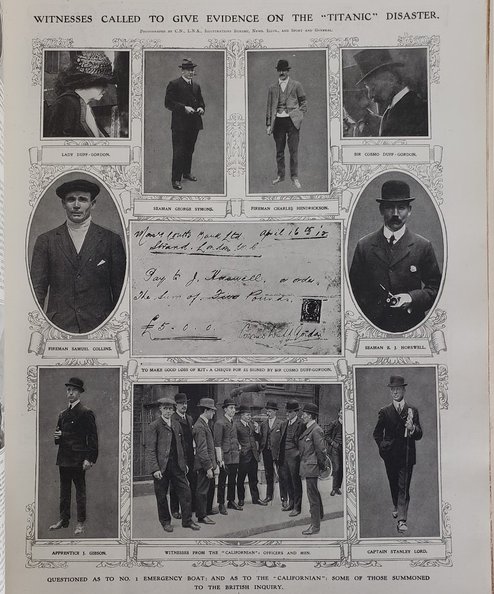 WITNESSES CALLED TO GIVE EVIDENCE ON THE "TITANIC" DISASTER.
PHOTOGRAPHS BY C.N., L.N.A., ILLUSTRATIONS BUREAU, NEWS. ILLUS., AND SPORT AND GENERAL.
LADY DUFF-GORDON.
SEAMAN GEORGE SYMONS.
FIREMAN CHARLES HENDRICKSON.
SIR COSMO DUFF-GORDON.
Bank Ltd April 16th 12
Strand. London W.C
Pay to J. Horswell. or order
The Sum of Five Pounds.
£5-0.0
FIREMAN SAMUEL COLLINS.
SEAMAN E. J. HORSWELL.
TO MAKE GOOD LOSS OF KIT: A CHEQUE FOR £5 SIGNED BY SIR COSMO DUFF-GORDON.
APPRENTICE J. GIBSON.
WITNESSES FROM THE "CALIFORNIAN": OFFICERS AND MEN.
CAPTAIN STANLEY LORD.
QUESTIONED AS TO NO. 1 EMERGENCY BOAT: AND AS TO THE "CALIFORNIAN": SOME OF THOSE SUMMONED
TO THE BRITISH INQUIRY.